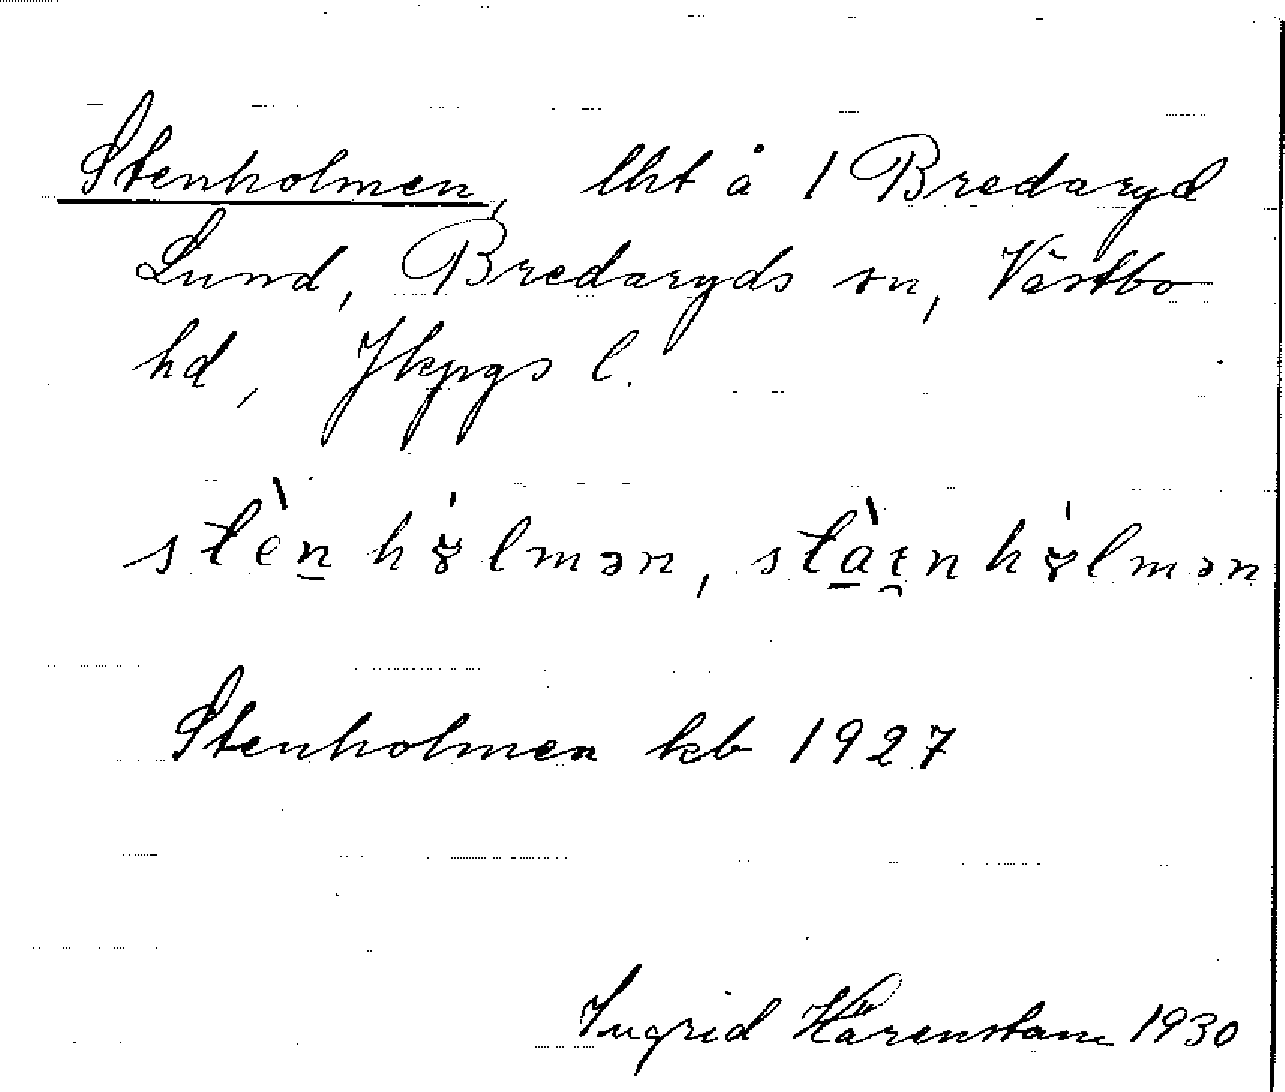 Stenholmen, lht å 1 Bredaryd
Lund, Bredaryds sn, Västbo
hd, Jkpgs l.
stèn hɤ̀lmən, stàɛnhɤ̀lmən
Stenholmen kb 1927
Ingrid Härenstam 1930